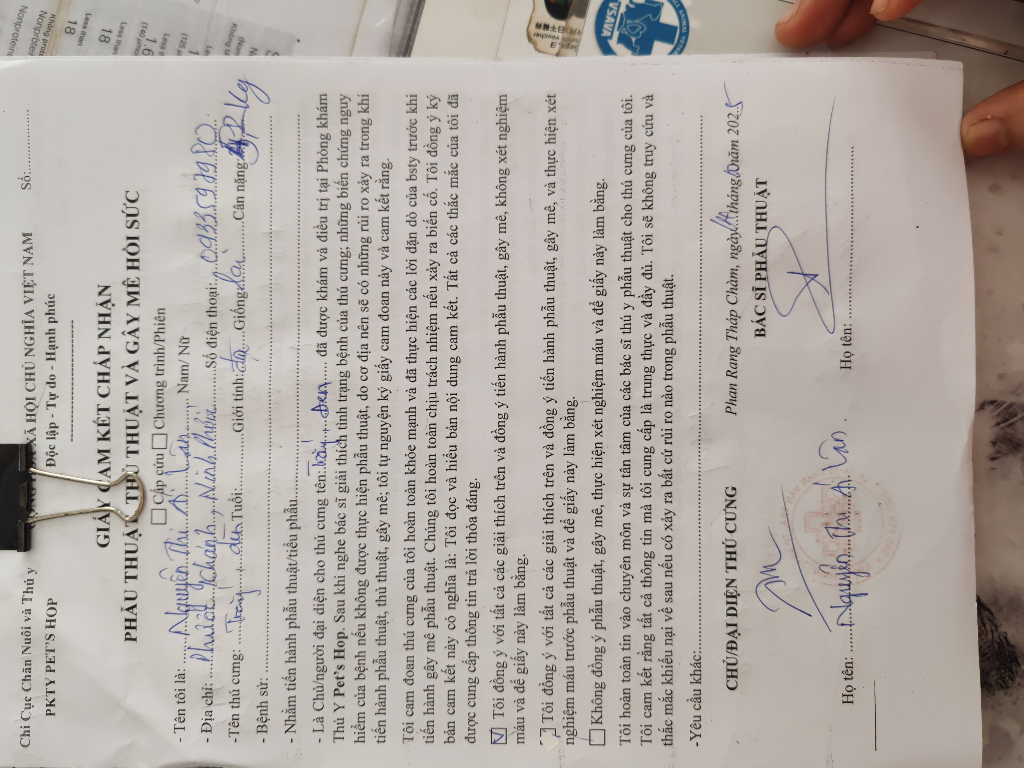 Chi Cục Chăn Nuôi và Thú y
XÃ HỘI CHỦ NGHĨA VIỆT NAM
Số:
PKTY PET'S HOP
Độc lập - Tự do - Hạnh phúc
GIẤY CAM KẾT CHẤP NHẬN
PHẪU THUẬT, THỦ THUẬT VÀ GÂY MÊ HỒI SỨC
Cấp cứu Chương trình/Phiên
- Tên tôi là: Nguyễn Thị Di Vân Nam/ Nữ
- Địa chỉ: Ninh Thuận Số điện thoại: 0933597980
-Tên thú cưng: Tuổi: Giới tính: Giống: Lai Cân nặng: Kg
- Bệnh sử:
- Nhằm tiến hành phẫu thuật/tiểu phẫu
- Là Chủ/người đại diện cho thú cưng tên: Đen đã được khám và điều trị tại Phòng khám
Thú Y Pet's Hop. Sau khi nghe bác sĩ giải thích tình trạng bệnh của thú cưng; những biến chứng nguy
hiểm của bệnh nếu không được thực hiện phẫu thuật, do cơ địa nên sẽ có những rủi ro xảy ra trong khi
tiến hành phẫu thuật, thủ thuật, gây mê; tôi tự nguyện ký giấy cam đoan này và cam kết rằng.
Tôi cam đoan thú cưng của tôi hoàn toàn khỏe mạnh và đã thực hiện các lời dặn dò của bsty trước khi
tiến hành gây mê phẫu thuật. Chúng tôi hoàn toàn chịu trách nhiệm nếu xảy ra biến cố. Tôi đồng ý ký
bản cam kết này có nghĩa là: Tôi đọc và hiểu bản nội dung cam kết. Tất cả các thắc mắc của tôi đã
được cung cấp thông tin trả lời thỏa đáng.
Tôi đồng ý với tất cả các giải thích trên và đồng ý tiến hành phẫu thuật, gây mê, không xét nghiệm
máu và để giấy này làm bằng.
Tôi đồng ý với tất cả các giải thích trên và đồng ý tiến hành phẫu thuật, gây mê, và thực hiện xét
nghiệm máu trước phẫu thuật và để giấy này làm bằng.
Không đồng ý phẫu thuật, gây mê, thực hiện xét nghiệm máu và để giấy này làm bằng.
Tôi hoàn toàn tin vào chuyên môn và sự tận tâm của các bác sĩ thú y phẫu thuật cho thú cưng của tôi.
Tôi cam kết rằng tất cả thông tin mà tôi cung cấp là trung thực và đầy đủ. Tôi sẽ không truy cứu và
thắc mắc khiếu nại về sau nếu có xảy ra bất cứ rủi ro nào trong phẫu thuật.
-Yêu cầu khác:
Phan Rang Tháp Chàm, ngày 14 tháng năm 2025
CHỦ/ĐẠI DIỆN THÚ CƯNG
BÁC SĨ PHẪU THUẬT
Họ tên: Nguyễn Thị Di Vân
Họ tên:
VSAVA